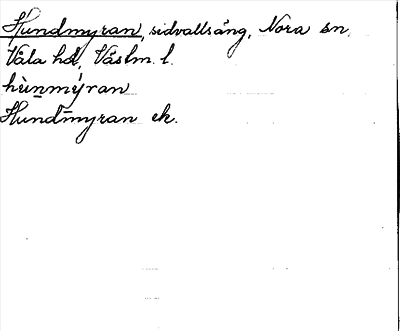 Hundmyran, sidvallsäng, Nora sn,
Våla hd, Väslm. l.
hùnmýran
Hundmyran ek.